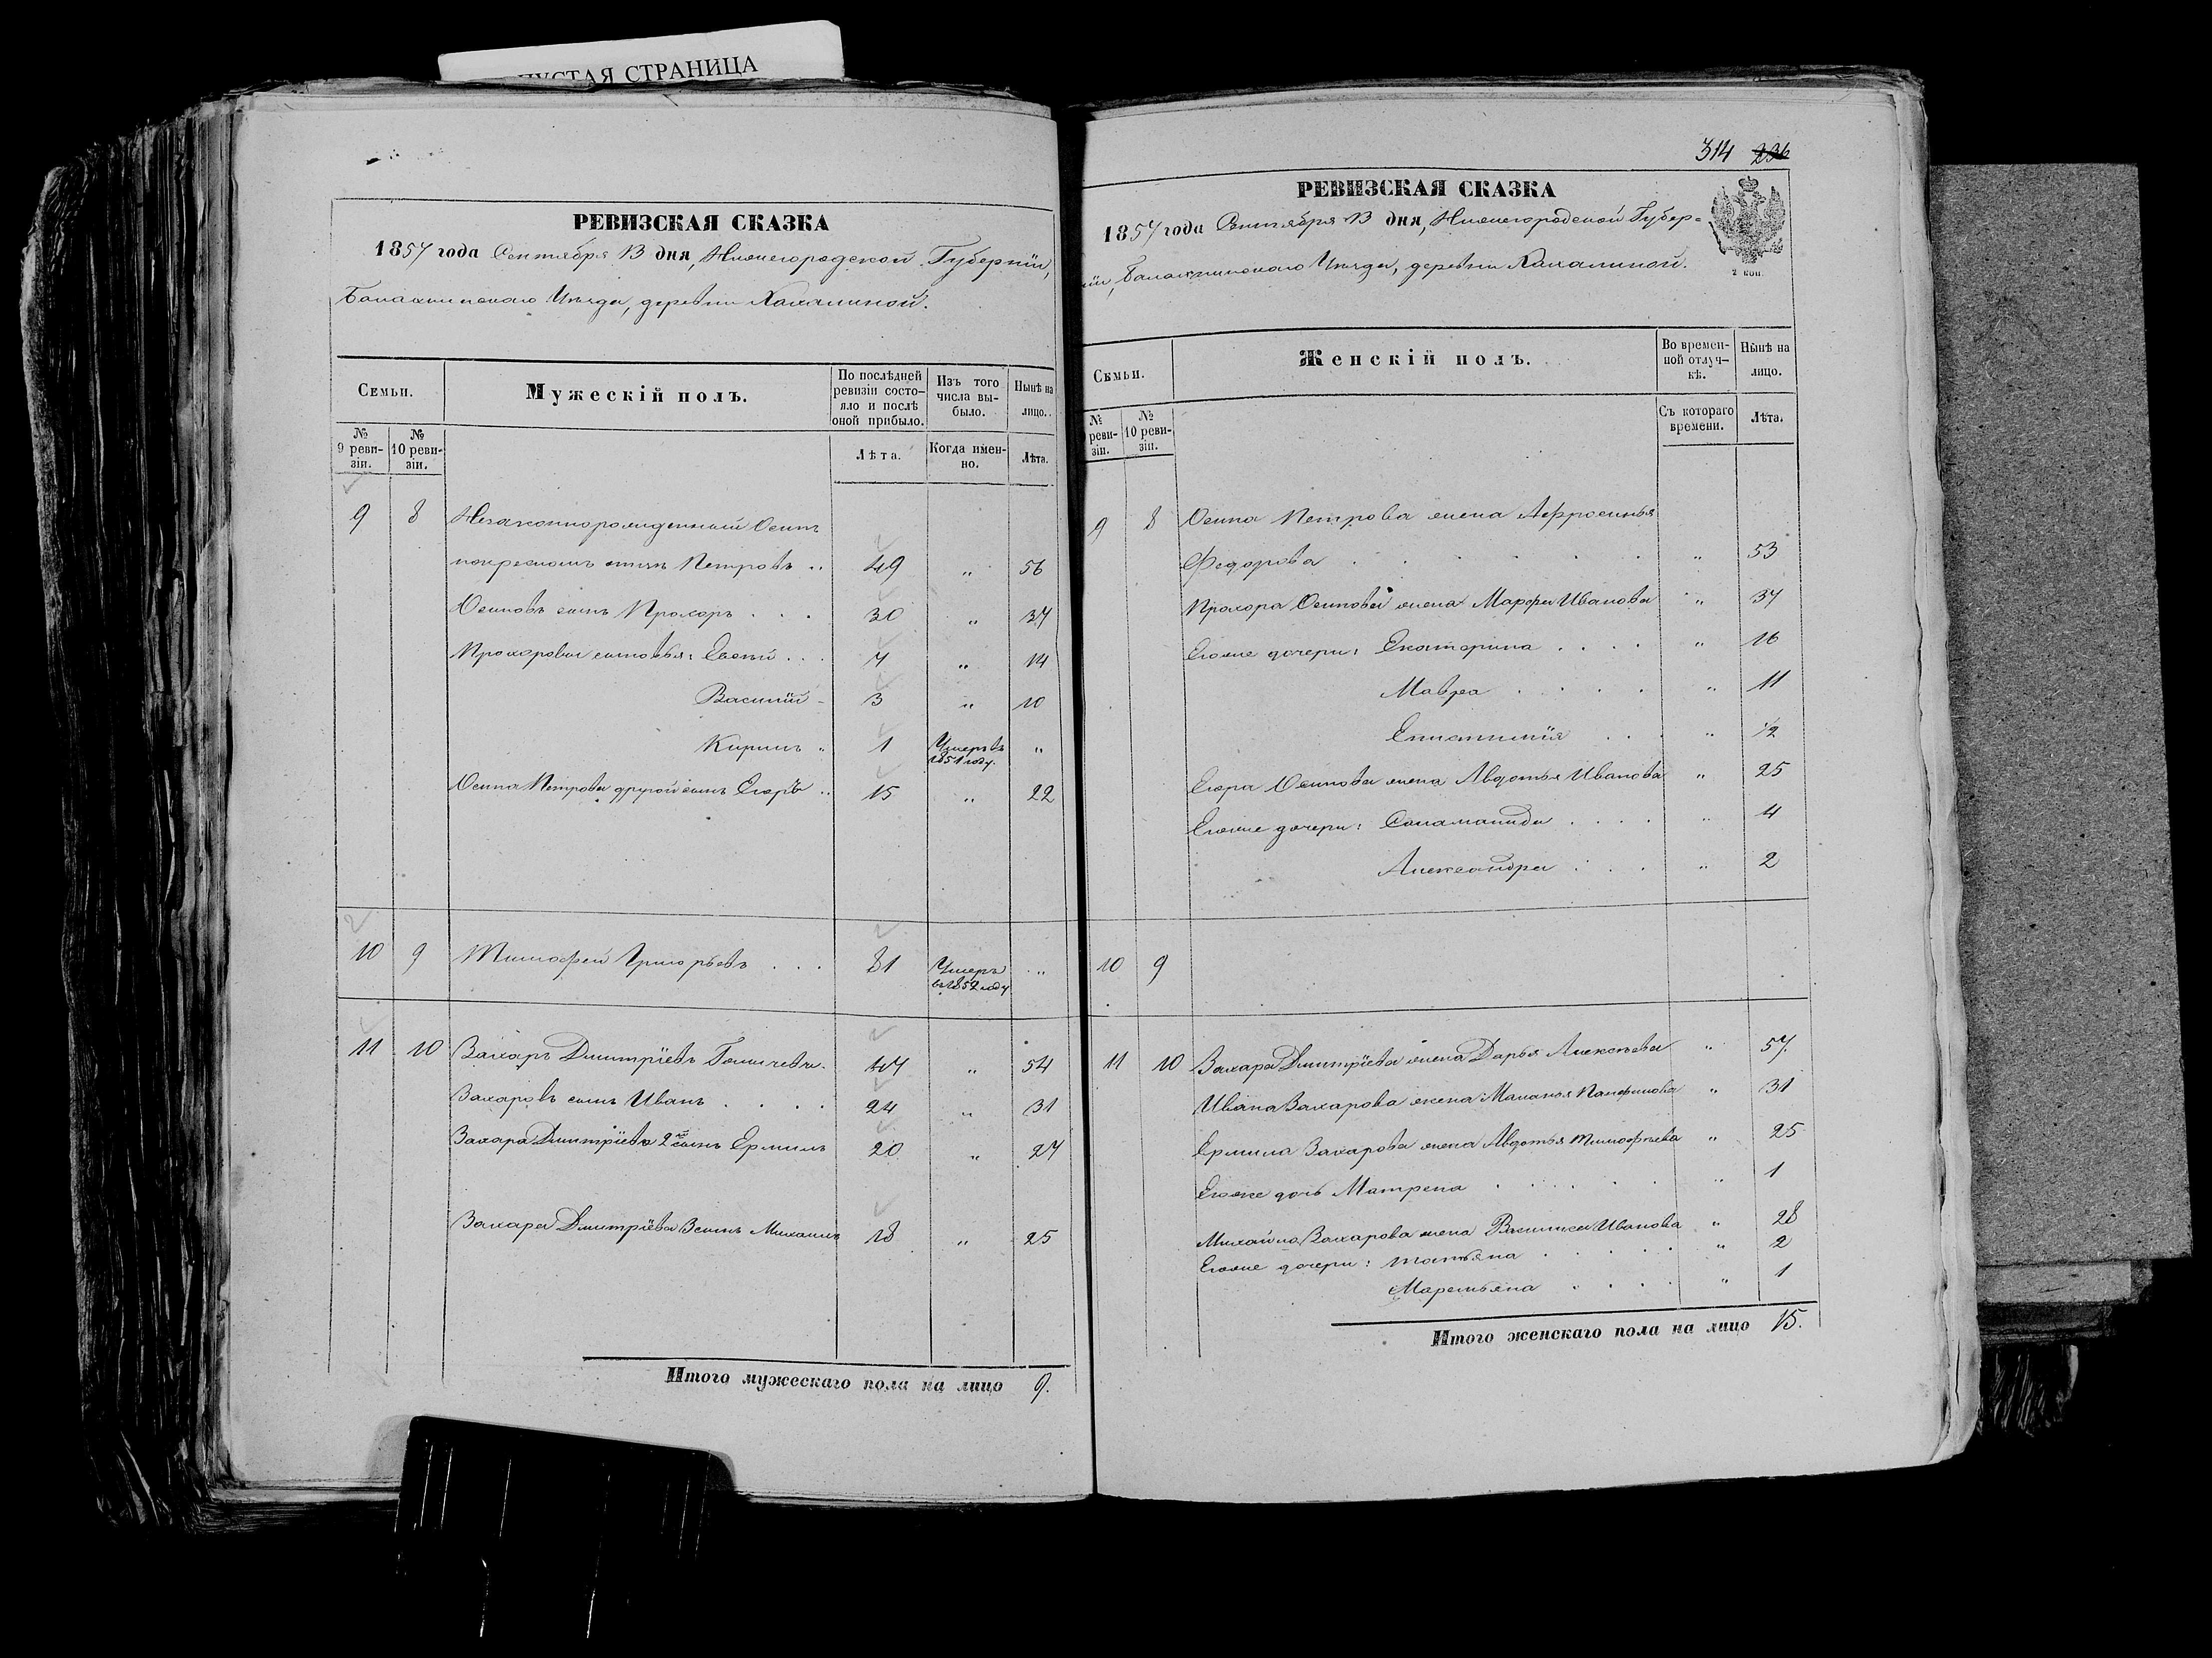 ПУСТАЯ СТРАНИЦА
РЕВИЗСКАЯ СКАЗКА
1857 года Сентября 13 дня, Нижегородской Губернiи,
Балахнинскаго Уѣзда, деревни Хахалиной.
Семьи.
Мужескiй полъ.
По послѣдней ревизiи состояло и послѣ оной прибыло.
Изъ того числа выбыло.
Нынѣ на лицо.
№ 9 ревизiи.
№ 10 ревизiи.
Лѣта.
Когда именно.
Лѣта.
9 8 Незаконнорожденный Осипъ
покрестномъ отцѣ Петровъ .. 49 " 56
Осиповъ сынъ Прохоръ . . . 30 " 37
Прохоровы сыновья: Евсѣй . . . 7 " 14
Василiй - 3 " 10
Кирилъ " 1 Умеръ въ 1851 году. "
Осипа Петрова другой сынъ Егоръ .. 15 " 22
10 9 Тимофей Григорьевъ . . . 81 Умеръ въ 1852 году "
11 10 Захаръ Дмитрiевъ 47 " 54
Захаровъ сынъ Иванъ . . . . 24 " 31
Захара Дмитрiева 2й сынъ Ермилъ 20 " 27
Захара Дмитрiева 3 сынъ Михаилъ 18 " 25
Итого мужескаго пола на лицо 9.
314 236
РЕВИЗСКАЯ СКАЗКА
1857 года Сентября 13 дня, Нижегородской Губер-
нiи, Балахнинскаго Уѣзда, деревни Хахалиной.
2 коп.
Семьи.
Женскiй полъ.
Во временной отлучкѣ.
Нынѣ на лицо.
№ ревизiи.
№ 10 ревизiи.
Съ котораго времени.
Лѣта.
9 8 Осипа Петрова жена Афросинья
Федорова . . . . . . . " 53
Прохора Осипова жена Марфа Иванова " 37
Егоже дочери: Екатерина . . . . " 16
Мавра . . . . . " 11
Епистимiя . . . " 1/2
Егора Осипова жена Авдотья Иванова " 25
Егоже дочери: Соломанида . . . . " 4
Александра . . . " 2
10 9
11 10 Захара Дмитрiева жена Дарья Алексѣева " 57.
Ивана Захарова жена Маланья Панфилова " 31
Ермила Захарова жена Авдотья Тимофѣева " 25
Егоже дочь Матрена . . . . . . " 1
Михайла Захарова жена Василиса Иванова " 28
Егоже дочери: Татьяна . . . . . " 2
Маремьяна . . . . " 1
Итого женскаго пола на лицо 15.